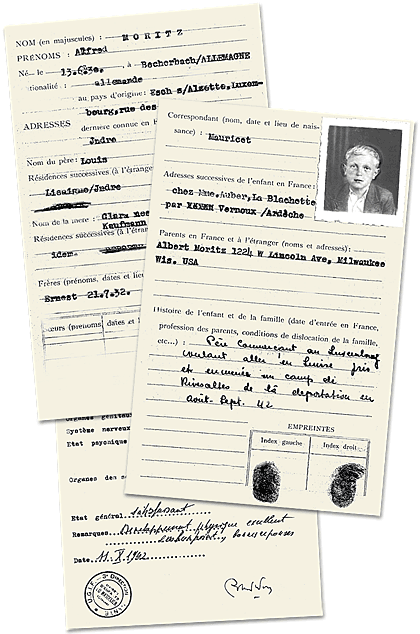 NOM (en majuscules) : MORITZ
PRÉNOMS : Alfred
Né... le 13.6.30. , à Becherbach/ALLEMAGNE
tionalité : allemande
au pays d'origine: Esch s/Alzette, Luxem-
bourg, rue des
ADRESSES
derniere connue en
Indre
Nom du père: Louis
Résidences successives (à l'étranger
/Indre
Nom de la mere : Clara nee
Kaufmann
Résidences successives (à l'étran
idem
Frères (prénoms, dates et lieu
Ernest 21.7.32.
sœurs (prénoms, dates et l
Correspondant (nom, date et lieu de nais-
sance) : Mauricet
Adresses successives de l'enfant en France :
chez Mme. Auber, La Blachette
par Vernoux /Ardèche
Parents en France et à l'étranger (noms et adresses):
Albert Moritz 1224 W Lincoln Ave, Milwaukee
Wis. USA
Histoire de l'enfant et de la famille (date d'entrée en France,
profession des parents, conditions de dislocation de la famille,
etc...) : Père commerçant au Luxembourg
voulant aller en Suisse pris
et emmenés au camp de
Rivesaltes de là deportation en
août-Sept. 42
EMPREINTES
Index gauche
Index droit
Organes génitau
Système nerveux
Etat psychique
Organes des s
Etat général satisfaisant
Remarques Développement physique excellent
Date 11.X.1942
U.G.I.F. - 3e Direction